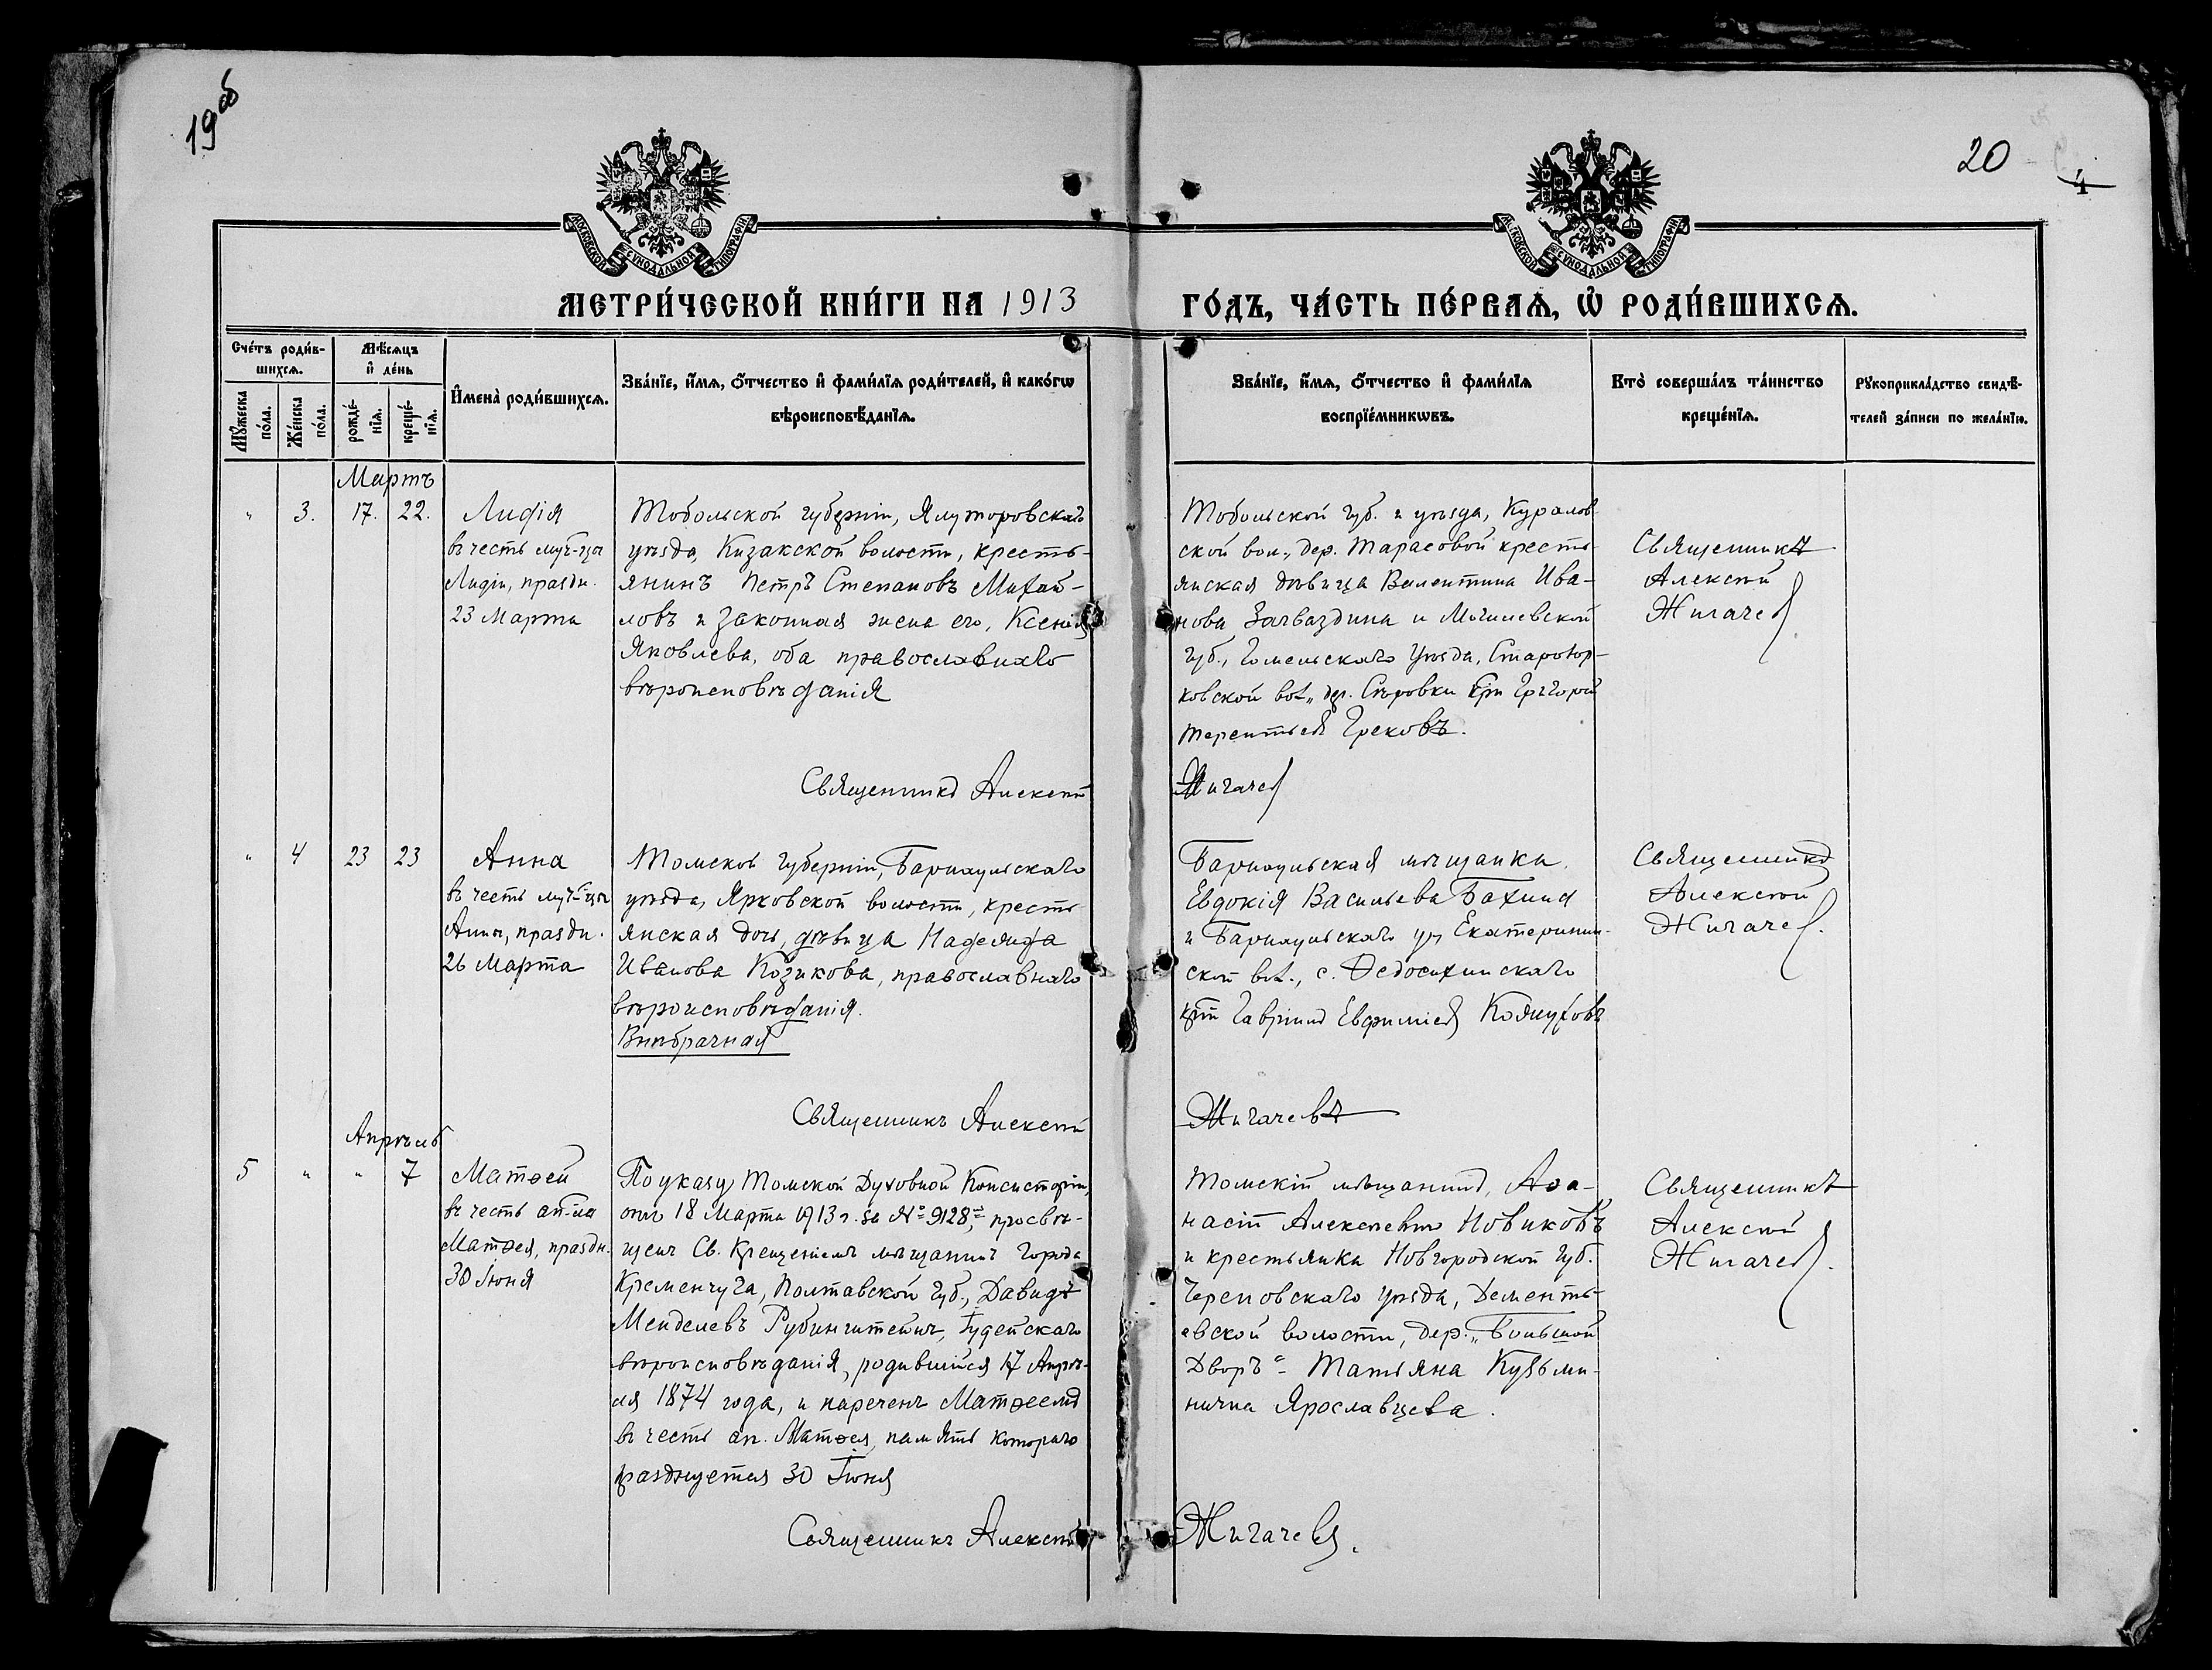 19об
20
4
МОСКОВСКОЙ СѴНОДАЛЬНОЙ ТИПОГРАФІИ
МОСКОВСКОЙ СѴНОДАЛЬНОЙ ТИПОГРАФІИ
МЕТРИ́ЧЕСКОЙ КНИ́ГИ НА 1913
ГО́ДЪ, ЧА́СТЬ ПЕ́РВАѦ, Ѡ РОДИ́ВШИХСѦ.
Сче́тъ роди́в-
шихсѧ.
Мꙋ́жеска по́ла.
Же́нска по́ла.
Мѣ́сѧцъ
и҆ де́нь
рожде́-
нїѧ.
креще́-
нїѧ.
И҆мена̀ роди́вшихсѧ.
Зва́нїе, и҆́мѧ, ѻ҆́тчество и҆ фами́лїѧ роди́телей, и҆ како́гѡ
вѣроисповѣ́данїѧ.
Зва́нїе, и҆́мѧ, ѻ҆́тчество и҆ фами́лїѧ
воспрїе́мникѡвъ.
Кто̀ соверша́лъ та́инство
креще́нїѧ.
Рꙋкоприкла́дство свидѣ́-
телей за́писи по жела́нїю.
Мартъ
" 3. 17. 22.
Лидія
въ честь муч-цы
Лидіи, праздн.
23 Марта
Тобольской губерніи, Ялуторовскаго
уѣзда, Кизакской волости, кресть-
янинъ Петръ Степановъ Михай-
ловъ и законная жена его, Ксенія
Яковлева, оба православнаго
вѣроисповѣданія
Тобольской губ. и уѣзда, Куралов-
ской вол., дер. Тарасовой кресть-
янская дѣвица Валентина Ива-
нова Загваздина и Могилевской
губ., Гомельскаго уѣзда,
ковской вол., дер. кр-нъ Григорій
Терентьев Грековъ.
Священникъ
Алексѣй
Жигачев
Священникъ Алексѣй
Жигачев
" 4 23 23
Анна
въ честь муч-цы
Анны, праздн.
26 Марта
Томской губерніи, Барнаульскаго
уѣзда, Ярковской волости, кресть-
янская дочь, дѣвица Надежда
Иванова Козикова, православнаго
вѣроисповѣданія.
Внѣбрачная
Барнаульская мѣщанка
Евдокія Васильева Бахина
и Барнаульскаго у, Екатеринин-
ской вол., с. Ѳедосихинскаго
кр-нъ Гавріилъ Евфиміев
Священникъ
Алексѣй
Жигачев.
Священникъ Алексѣй
Жигачевъ
Апрѣль
5 " " 7
Матѳей
въ честь ап-ла
Матѳея, праздн.
30 Іюня
По указу Томской Духовной Консисторіи,
отъ 18 Марта 1913 г. за № 9128, просвѣ-
щенъ Св. Крещеніемъ мѣщанинъ города
Кременчуга, Полтавской губ., Давидъ
Менделевъ Рубинштейнъ, Іудейскаго
вѣроисповѣданія, родившійся 17 Апрѣ-
ля 1874 года, и нареченъ Матѳеемъ
въ честь ап. Матѳея, память котораго
празднуется 30 Іюня
Томскій мѣщанинъ, Аѳа-
насій Алексѣевъ Новиковъ
и крестьянка Новгородской губ.
Череповскаго уѣзда, Дементь-
евской волости, дер. „Большой
Дворъ" - Татьяна Кузьми-
нична Ярославцева.
Священникъ
Алексѣй
Жигачев.
Священникъ Алексѣй
Жигачев.